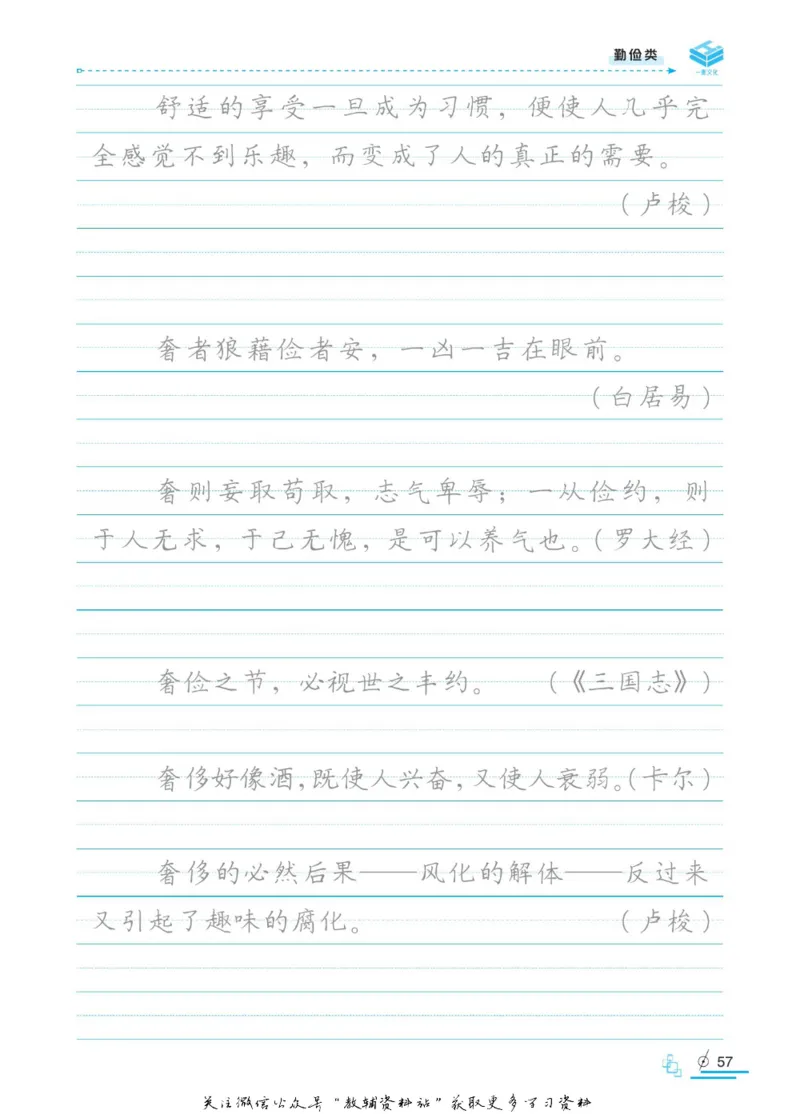 勤俭类
一本文化
舒适的享受一旦成为习惯，便使人几乎完
全感觉不到乐趣，而变成了人的真正的需要。
（卢梭）
奢者狼藉俭者安，一凶一吉在眼前。
（白居易）
奢则妄取苟取，志气卑辱；一从俭约，则
于人无求，于己无愧，是可以养气也。（罗大经）
奢俭之节，必视世之丰约。（《三国志》）
奢侈好像酒，既使人兴奋，又使人衰弱。（卡尔）
奢侈的必然后果——风化的解体——反过来
又引起了趣味的腐化。（卢梭）
57
关注微信公众号“教辅资料站”获取更多学习资料